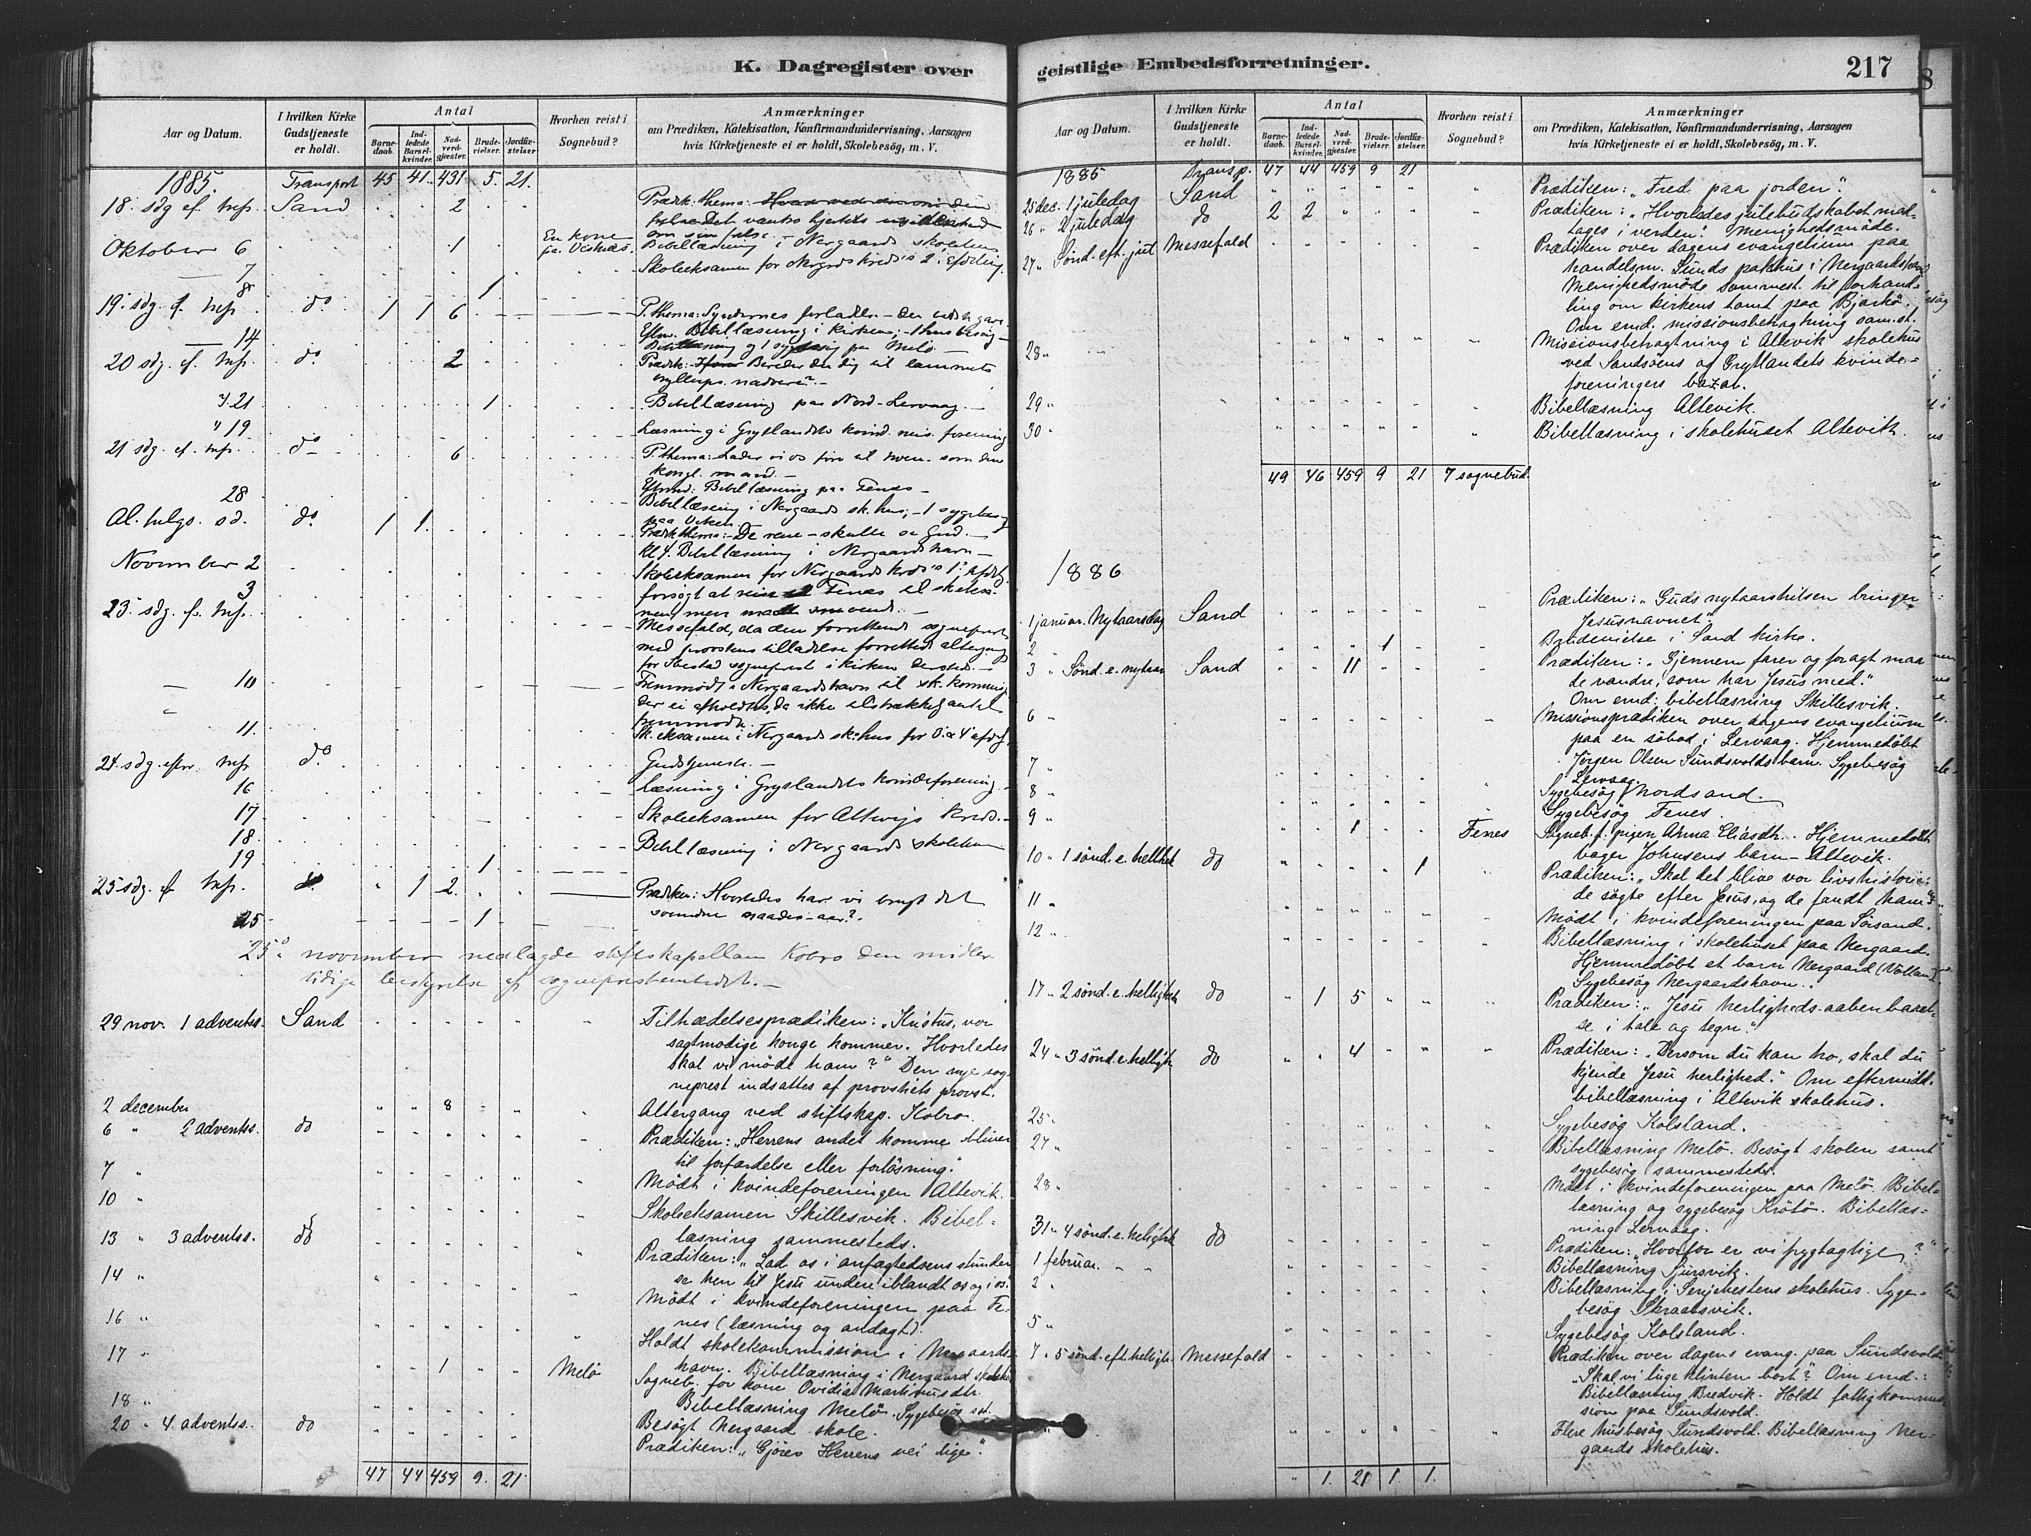 K. Dagregister over
Aar og Datum.
I hvilken Kirke Gudstjeneste er holdt.
Antal
Barnedaab.
Indledede Barselkvinder.
Nadverdgjester.
Brudevielser.
Jordfæstelser.
Hvorhen reist i Sognebud?
Anmærkninger
om Prædiken, Katekisation, Konfirmandundervisning, Aarsagen
hvis Kirketjeneste ei er holdt, Skolebesög, m. V.
1885. Transport 45 41. 431 5. 21.
18. sdg ef. tref. Sand 2 Prædk. thema:
om sin
Oktober 6 1 En kone Bibellæsning i Nergaards skolehus
7 Skoleeksamen for Nergrds kreds 2. afdeling
8 1
19. sdg. ef. tref do 1 1 6 P. thema: Syndernes forladelse.
Bibellæsning i kirken;
14 Bibellæsning og 1 sygebesög paa Melö.
20 sdg. ef. tref. do 2 Prædk: Bereder du dig til lammets
bryllups nadvere?
21 1 Bibellæsning paa Nord-Lervaag.
" 19 Læsning i Gryllandets kvind. mis. forening
21 sdg. ef. tref. do 6 P. thema:
kongl. mand.
28 Bibellæsning paa Fenes
Bibellæsning i Nergaards sk.hus; 1 sygebes.
Al. helgs. sd. do 1 1. Prædk thema: De rene skulle se Gud.
Kl 4. Bibellæsning i Nergaardshavn
November 2 Skoleeksamen for Nergaards kreds 1. afdel.
3 forsögt at reise til Fenes til skoleeksa-
men, men maatte omvende.
23. sdg. ef. tref. Messefald, da den forrettende sogneprest
med provstens tilladelse forrettede altergang
for Ibestad sogneprest i kirken dersteds.
10 Fremmödt i Nergaardshavn til sk. komming
der ei afholdtes, da ikke tilstrækkeligt antal
fremmödte.
11. Sk. eksamen i Nergaards sk.hus for afdel.
24. sdg. efter tref do Gudstjeneste.
16 Læsning i Gryllandets kvindeforening
17 Skoleeksamen for Altevigs kreds.
18. Bibellæsning i Nergaards skolehus
19 1
25 sdg. ef tref. do " 1 2. Prædiken: Hvorledes har vi brugt det
svundne naades-aar?
25 1
25de november nedlagde stiftskapellan Kobro den midler-
tidige bestyrelse af sogneprestembedet.
29 nov. 1 adventss. Sand Tiltrædelsesprædiken: "Kristus, vor
sagtmodige konge kommer. Hvorledes
skal vi möde ham?" Den nye sog-
neprest indsattes af provstiets provst.
2 december " " 8 Altergang ved stiftskap. Kobro.
6 " 2 adventss. do Prædiken: "Herrens andet komme bliver
til forfærdelse eller forlösning."
7 " Mödt i kvindeforeningen Altevik.
10 " Skoleeksamen Skillesvik. Bibel-
læsning sammesteds.
13 " 3 adventss. do Prædiken: "Lad os i anfægtedsens stunder
se hen til Jesu undere iblandt os og i os."
14 " Mödt i kvindeforeningen paa Fe-
nes (læsning og andagt).
16 " Holdt skolekommission i Nergaards-
havn. Bibellæsning i Nergaard skolehus
17 " " " 1 Melö Sogneb. for kone Ovidia Martinusdtr.
Bibellæsning Melö. Sygebesög sst.
18 " Besögt Nergaard skole.
20 " 4. adventss. do Prædiken: "Gjörer Herrens vei lige".
47 44 459 9. 21
geistlige Embedsforretninger.
217
Aar og Datum.
I hvilken Kirke Gudstjeneste er holdt.
Antal
Barnedaab.
Indledede Barselkvinder.
Nadverdgjester.
Brudevielser.
Jordfæstelser.
Hvorhen reist i Sognebud?
Anmærkninger
om Prædiken, Katekisation, Konfirmandundervisning, Aarsagen
hvis Kirketjeneste ei er holdt, Skolebesög, m. V.
1885 Transp. 47 44 459 9 21
25 dec. 1 juledag Sand Prædiken: "Fred paa jorden".
26 " 2 juledag do 2 2 Prædiken: "Hvorledes julebudskabet mod-
tages i verden." Menighedsmöde.
27 " Sönd. eft. jul Messefald Prædiken over dagens evangelium paa
handelsm. Lunds pakhus i Nergaardshavn
Menighedsmöde sammest. til forhand-
ling om kirkens tomt paa Bjarkö.
Om emd. missionsbetragtning sam. st.
28 " Missionsbetragtning i Altevik skolehus
ved Sandsöens og Gryllandets kvinde-
foreningers bazar.
29 " Bibellæsning Altevik.
30 " Bibellæsning i skolehuset Altevik.
49 46 459 9 21 7 sognebud.
1886
1 januar. Nytaarsdag Sand Prædiken: "Guds nytaarshilsen bringer
Jesusnavnet".
2 " 1 Brudevielse i Sand kirke.
3 " Sönd. e. nytaar Sand 11 Prædiken: "Gjennem farer og foragt maa
de vandre, som har Jesus med."
Om emd: bibellæsning Skillesvik.
6 " Missionsprædiken over dagens evangelium
paa en söbod i Lervaag. Hjemmedöbt
Jörgen Olsen Sundsvolds barn. Sygebesög
Lervaag.
7 "
8 " Sygebesög Nordsand.
9 " 1 Fenes Sygebesög Fenes.
Sogneb. f. pigen Anna Eliasdtr. Hjemmedöbt
bager Johnsens barn - Altevik.
10 " 1 sönd. e. hellhst do 1 Prædiken: "Skal det blive vor livshistorie:
de sögte efter Jesus, og de fandt ham".
11 " Mödt i kvindeforeningen paa Sörsand.
12 " Bibellæsning i skolehuset paa Nergaard.
Hjemmedöbt et barn Nergaard (Volland).
Sygebesög Nergaardshavn.
17 " 2 sönd. e. hellight do " 1 5 Prædiken: "Jesu herligheds-aabenbarel-
se i tale og tegn."
24 " 3 sönd. e. helligh do 4 Prædiken: "Dersom du kan tro, skal du
kjende Jesu herlighed." Om eftermidd.
bibellæsning i Altevik skolehus.
25 " Sygebesög Kolsland.
27 " Bibellæsning Melö. Besögt skolen samt
sygebesög sammesteds.
28 " Mödt i kvindeforeningen paa Melö. Bibel-
læsning og sygebesög Krötö. Bibellæs-
ning Lervaag.
31 " 4 sönd. e. helight do Prædiken: "Hvorfor er vi frygtagtige?"
1 februar. Bibellæsning Sjursvik.
2 " Bibellæsning i Senjehestens skolehus. Syge-
besög Skraatsvik.
5 " Sygebesög Kolsland.
7 " 5 sönd. eft. helligh. Messefald Prædiken over dagens evang. paa Sundsvold:
"Skal vi luge klinten bort?" Om emd.:
Bibellæsning Bredvik. Holdt fattigkommis-
sion paa Sundsvold.
Flere husbesög Sundsvold. Bibellæsning Ner-
gaards skolehus.
" 1. 21 1 1.
8